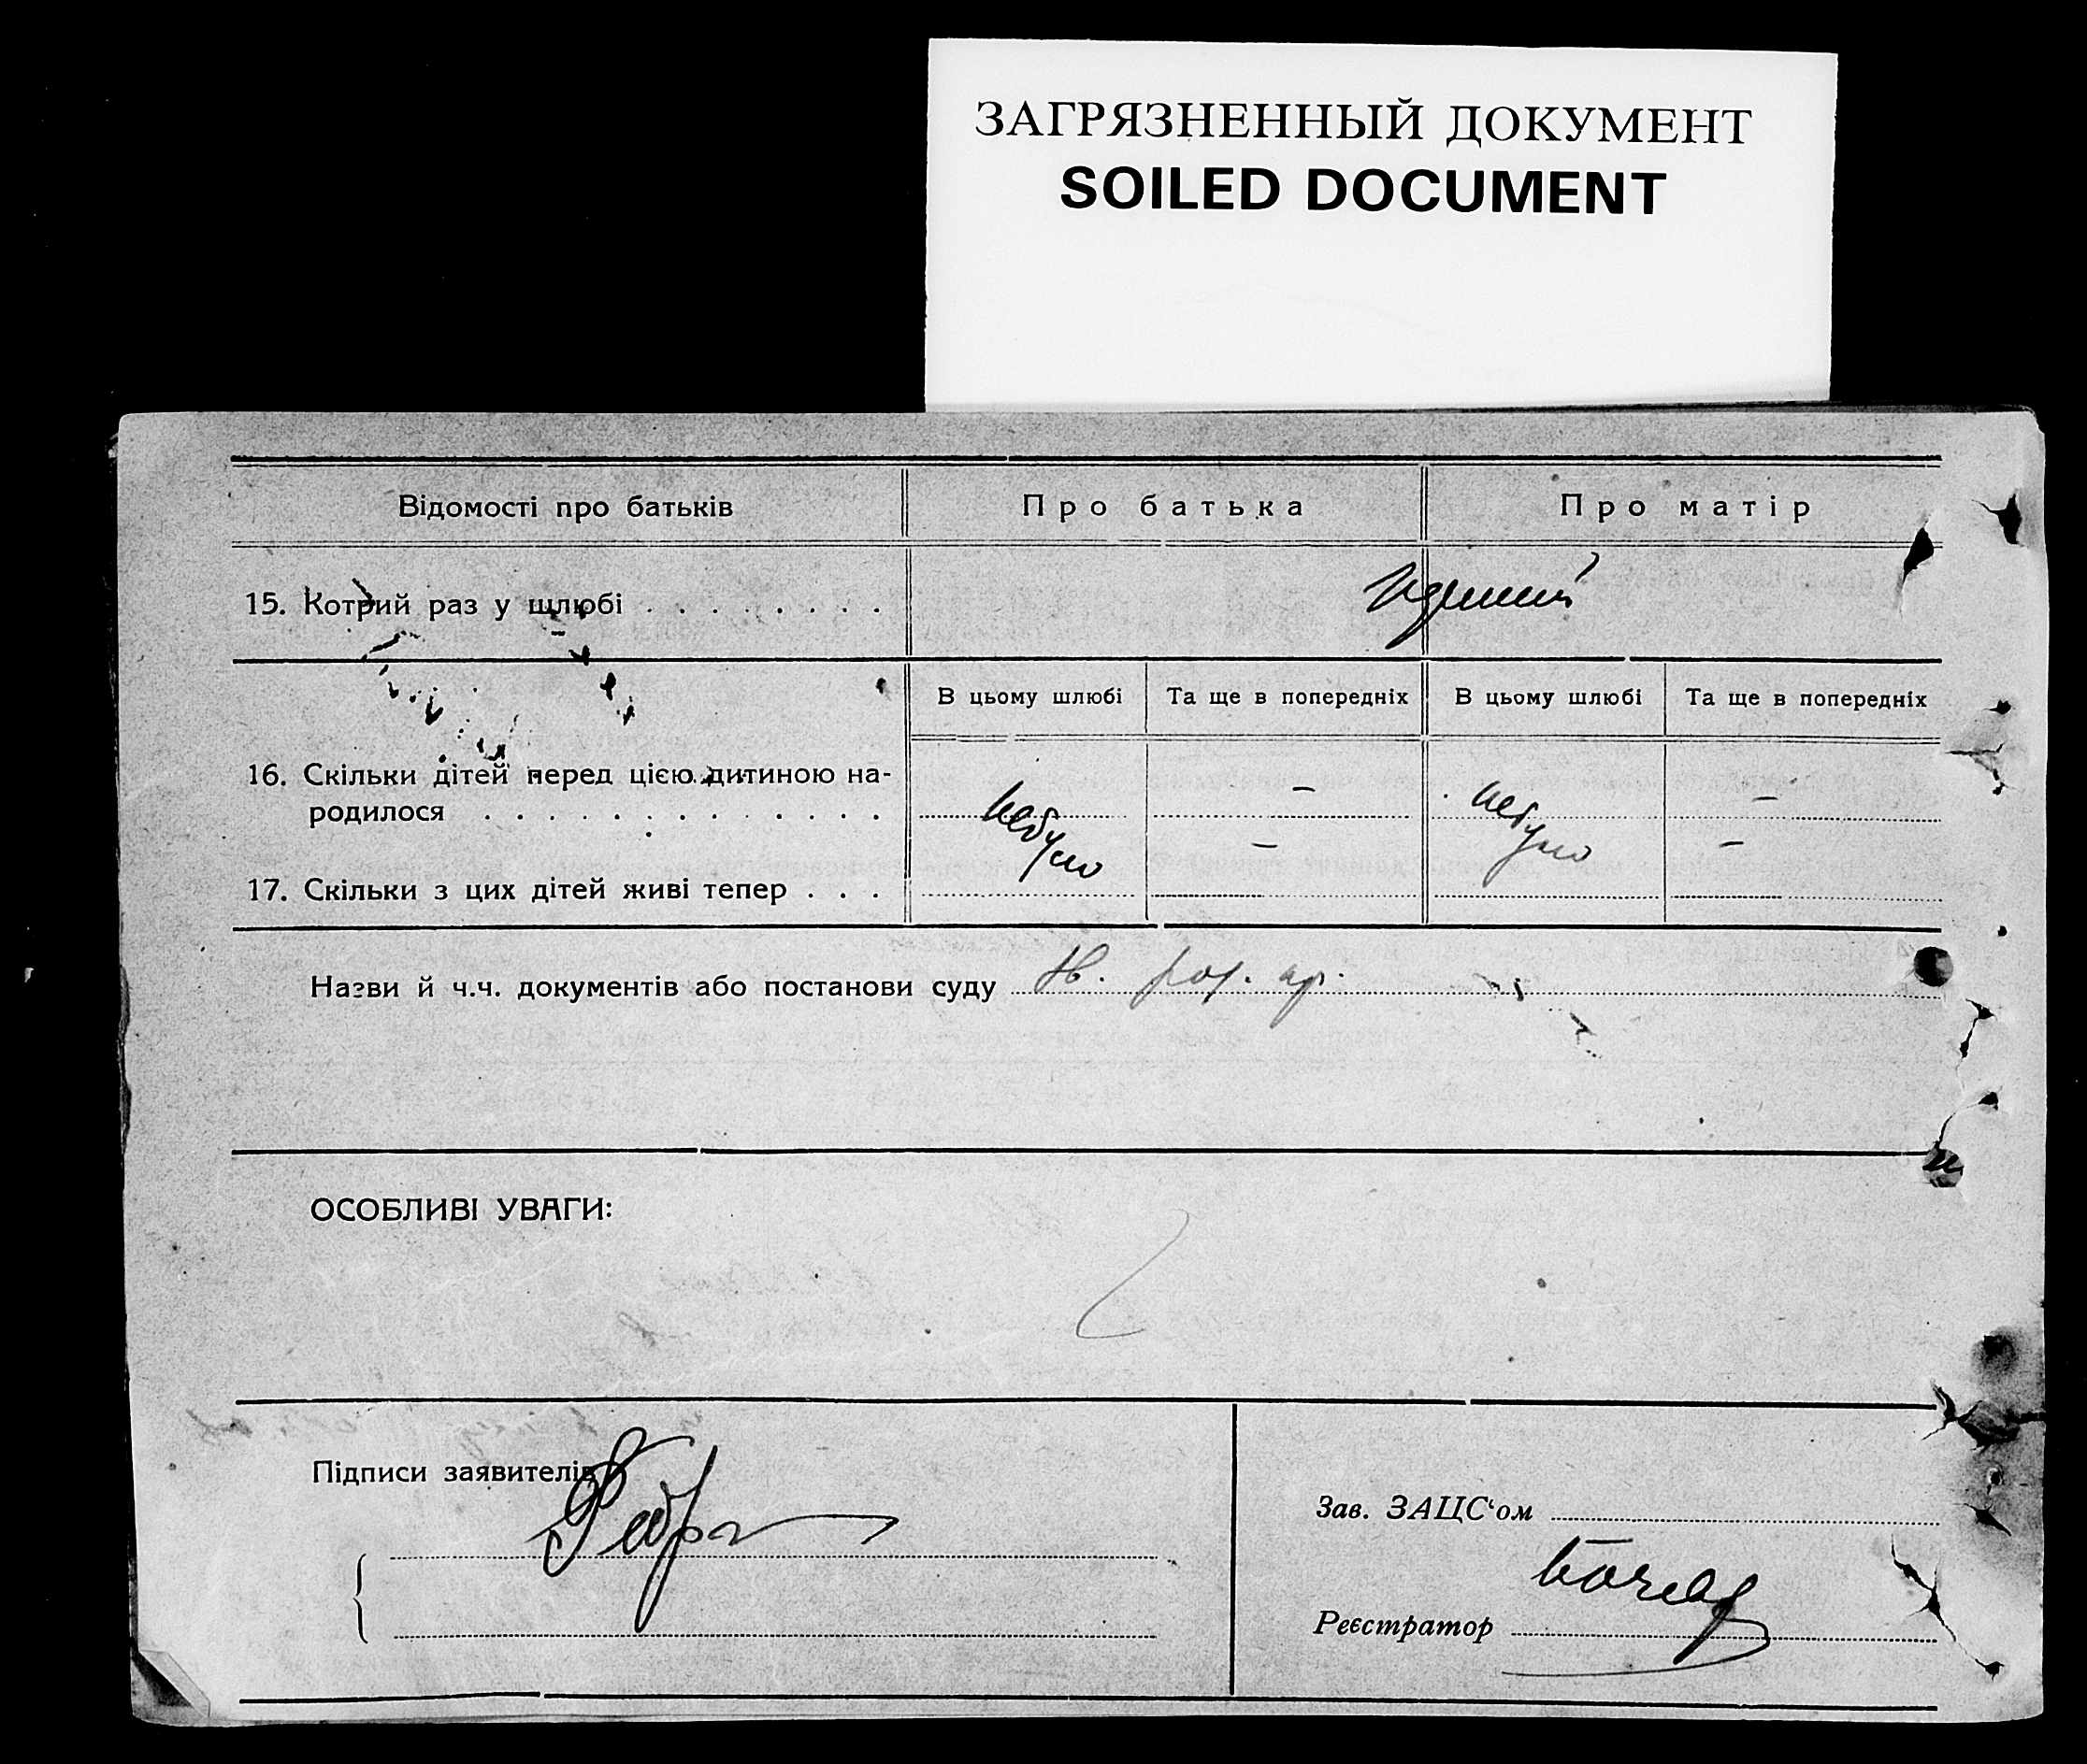 ЗАГРЯЗНЕННЫЙ ДОКУМЕНТ
SOILED DOCUMENT
Відомості про батьків
Про батька
Про матір
15. Котрий раз у шлюбі
В цьому шлюбі
Та ще в попередніх
В цьому шлюбі
Та ще в попередніх
16. Скільки дітей перед цією дитиною на-
родилося
небуло
–
небуло
–
17. Скільки з цих дітей живі тепер
–
–
Назви й ч.ч. документів або постанови суду
ОСОБЛИВІ УВАГИ:
Підписи заявителів
Зав. ЗАЦС‘ом
Реєстратор